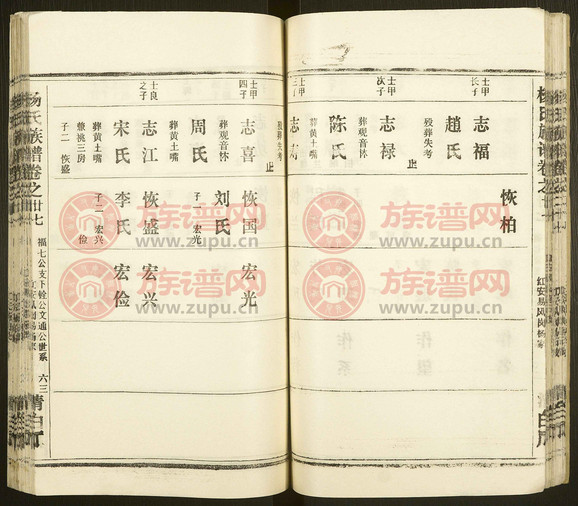 恢柏
士甲
长子
志福
趙氏
殁葬失考
止
士甲
次子
志禄
陈氏
葬黄土嘴
士甲
三子
志寿
殁葬失考
止
士甲
四子
志喜
葬观音㘰
周氏
葬黄土嘴
恢国
刘氏
子一 宏光
宏光
士良
之子
志江
宋氏
葬黄土嘴
兼祧三房
子二 恢盛
恢盛
李氏
子二 宏兴
宏俭
宏兴
宏俭
杨氏族谱卷之卅七
福七公支下铨公文通公世系
六三
清白
族谱网
www.zupu.cn
族谱网
www.zupu.cn
族谱网
www.zupu.cn
族谱网
www.zupu.cn